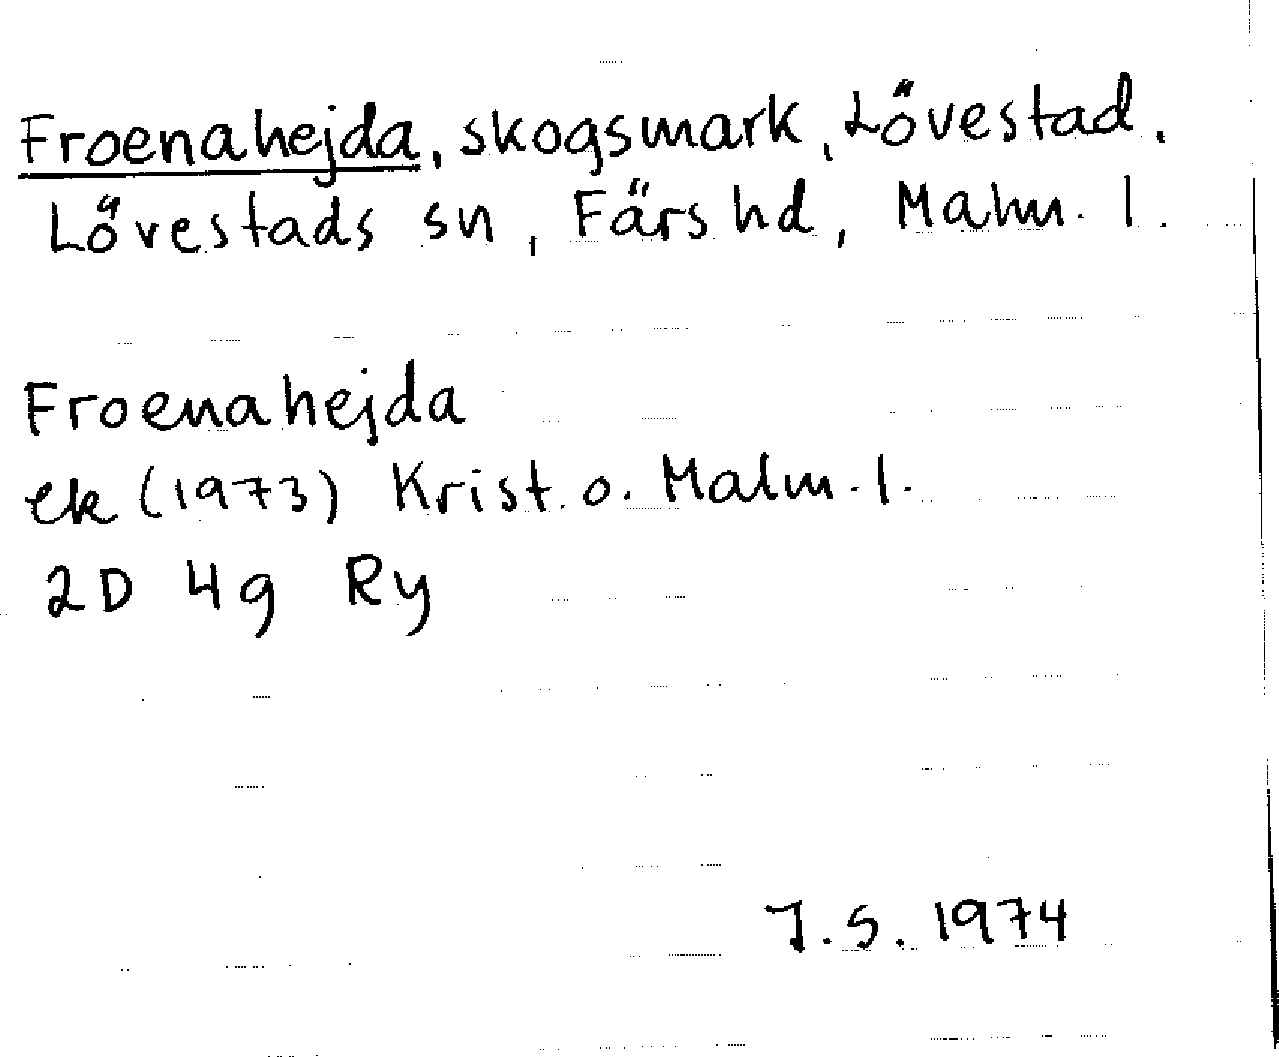 Froenahejda, skogsmark, Lövestad.
Lövestads sn, Färs hd, Malm. l.
Froenahejda
ek (1973) Krist. o. Malm. l.
2D 4g Ry
J. S. 1974